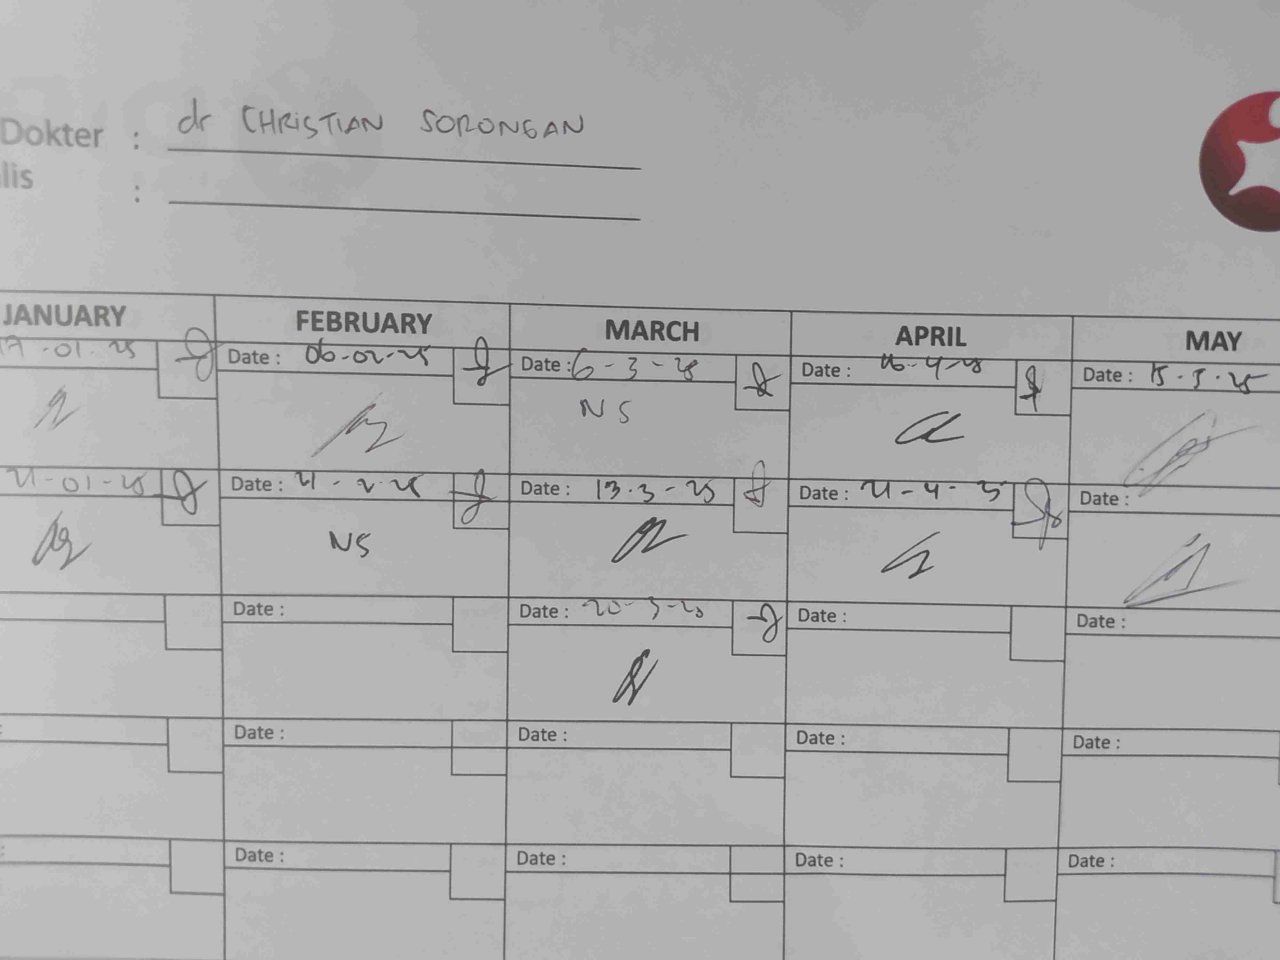 Dokter : dr CHRISTIAN SORONGAN
lis :
JANUARY FEBRUARY MARCH APRIL MAY
17-01-25 Date : 06-02-25 Date : 6-3-25 Date : 16-4-25 Date : 15-5-25
NS
21-01-25 Date : 21-2-25 Date : 13-3-25 Date : 21-4-25 Date :
NS
Date : Date : 20-3-25 Date : Date :
Date : Date : Date : Date :
Date : Date : Date : Date :